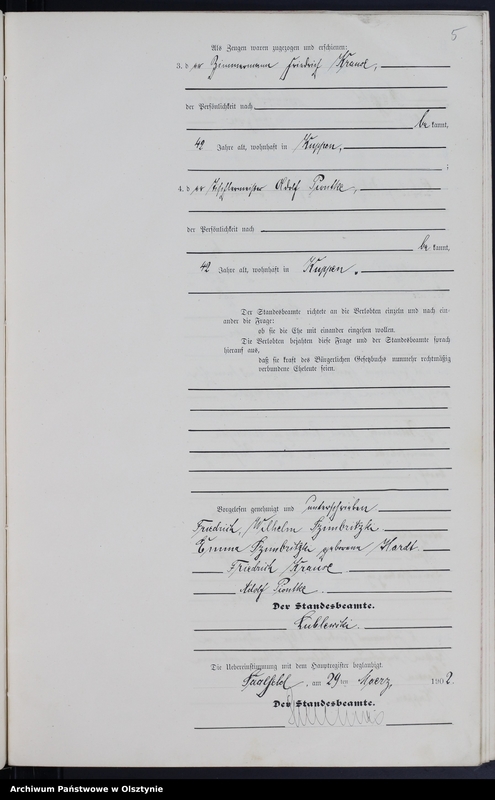 5
Als Zeugen waren zugezogen und erschienen:
3. der Zimmermann Friedrich Krause,
der Persönlichkeit nach
be kannt,
49 Jahre alt, wohnhaft in Kuppen,
;
4. der Tischlermeister Adolf Piontke,
der Persönlichkeit nach
be kannt,
42 Jahre alt, wohnhaft in Kuppen.
Der Standesbeamte richtete an die Verlobten einzeln und nach ein-
ander die Frage:
ob sie die Ehe mit einander eingehen wollen.
Die Verlobten bejahten diese Frage und der Standesbeamte sprach
hierauf aus,
daß sie kraft des Bürgerlichen Gesetzbuchs nunmehr rechtmäßig
verbundene Eheleute seien.
Vorgelesen genehmigt und unterschrieben
Friedrich, Wilhelm Szimbritzki
Emma Szimbritzki geborene Hardt.
Friedrich Krause
Adolf Piontke.
Der Standesbeamte.
Lublewski.
Die Uebereinstimmung mit dem Hauptregister beglaubigt.
Saalfeld, am 29 ten Maerz 1902.
Der Standesbeamte.
Archiwum Państwowe w Olsztynie